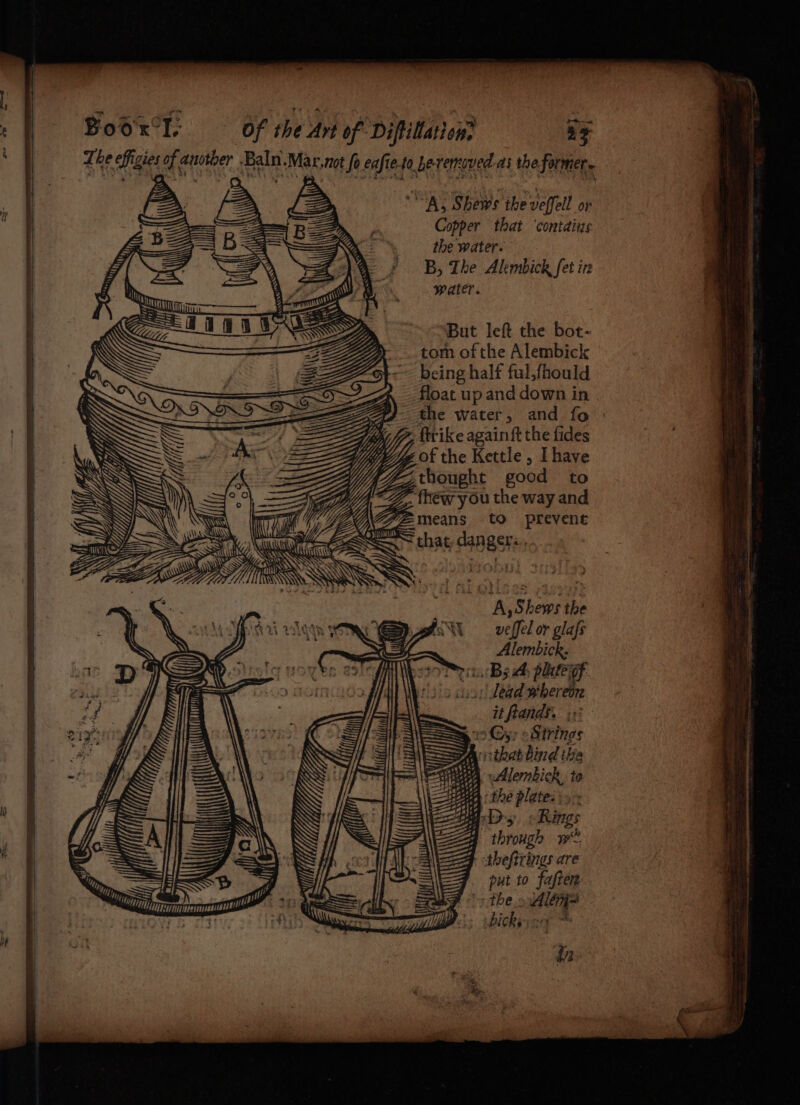 Book I. Of the Art of Diſtillation.
The effigies of another Baln. Mar. not ſo eaſie to be removed as the former.
A, Shews the veſſell or
Copper that contains
the water.
B, The Alembick ſet in
water.
B
B
B
A
But leſt the bot-
tom of the Alembick
being half ful, ſhould
float up and down in
the water, and ſo
ſtrike againſt the ſides
of the Kettle, I have
thought good to
ſhew you the way and
means to prevent
that danger.
A, Shews the
veſſel or glaſs
Alembick.
B, A plate of
lead whereon
it ſtands.
C, Strings
that bind the
Alembick to
the plate.
D, Rings
through wᶜʰ
the ſtrings are
put to faſten
the Alem-
bick.
D
A
C
C
B
In